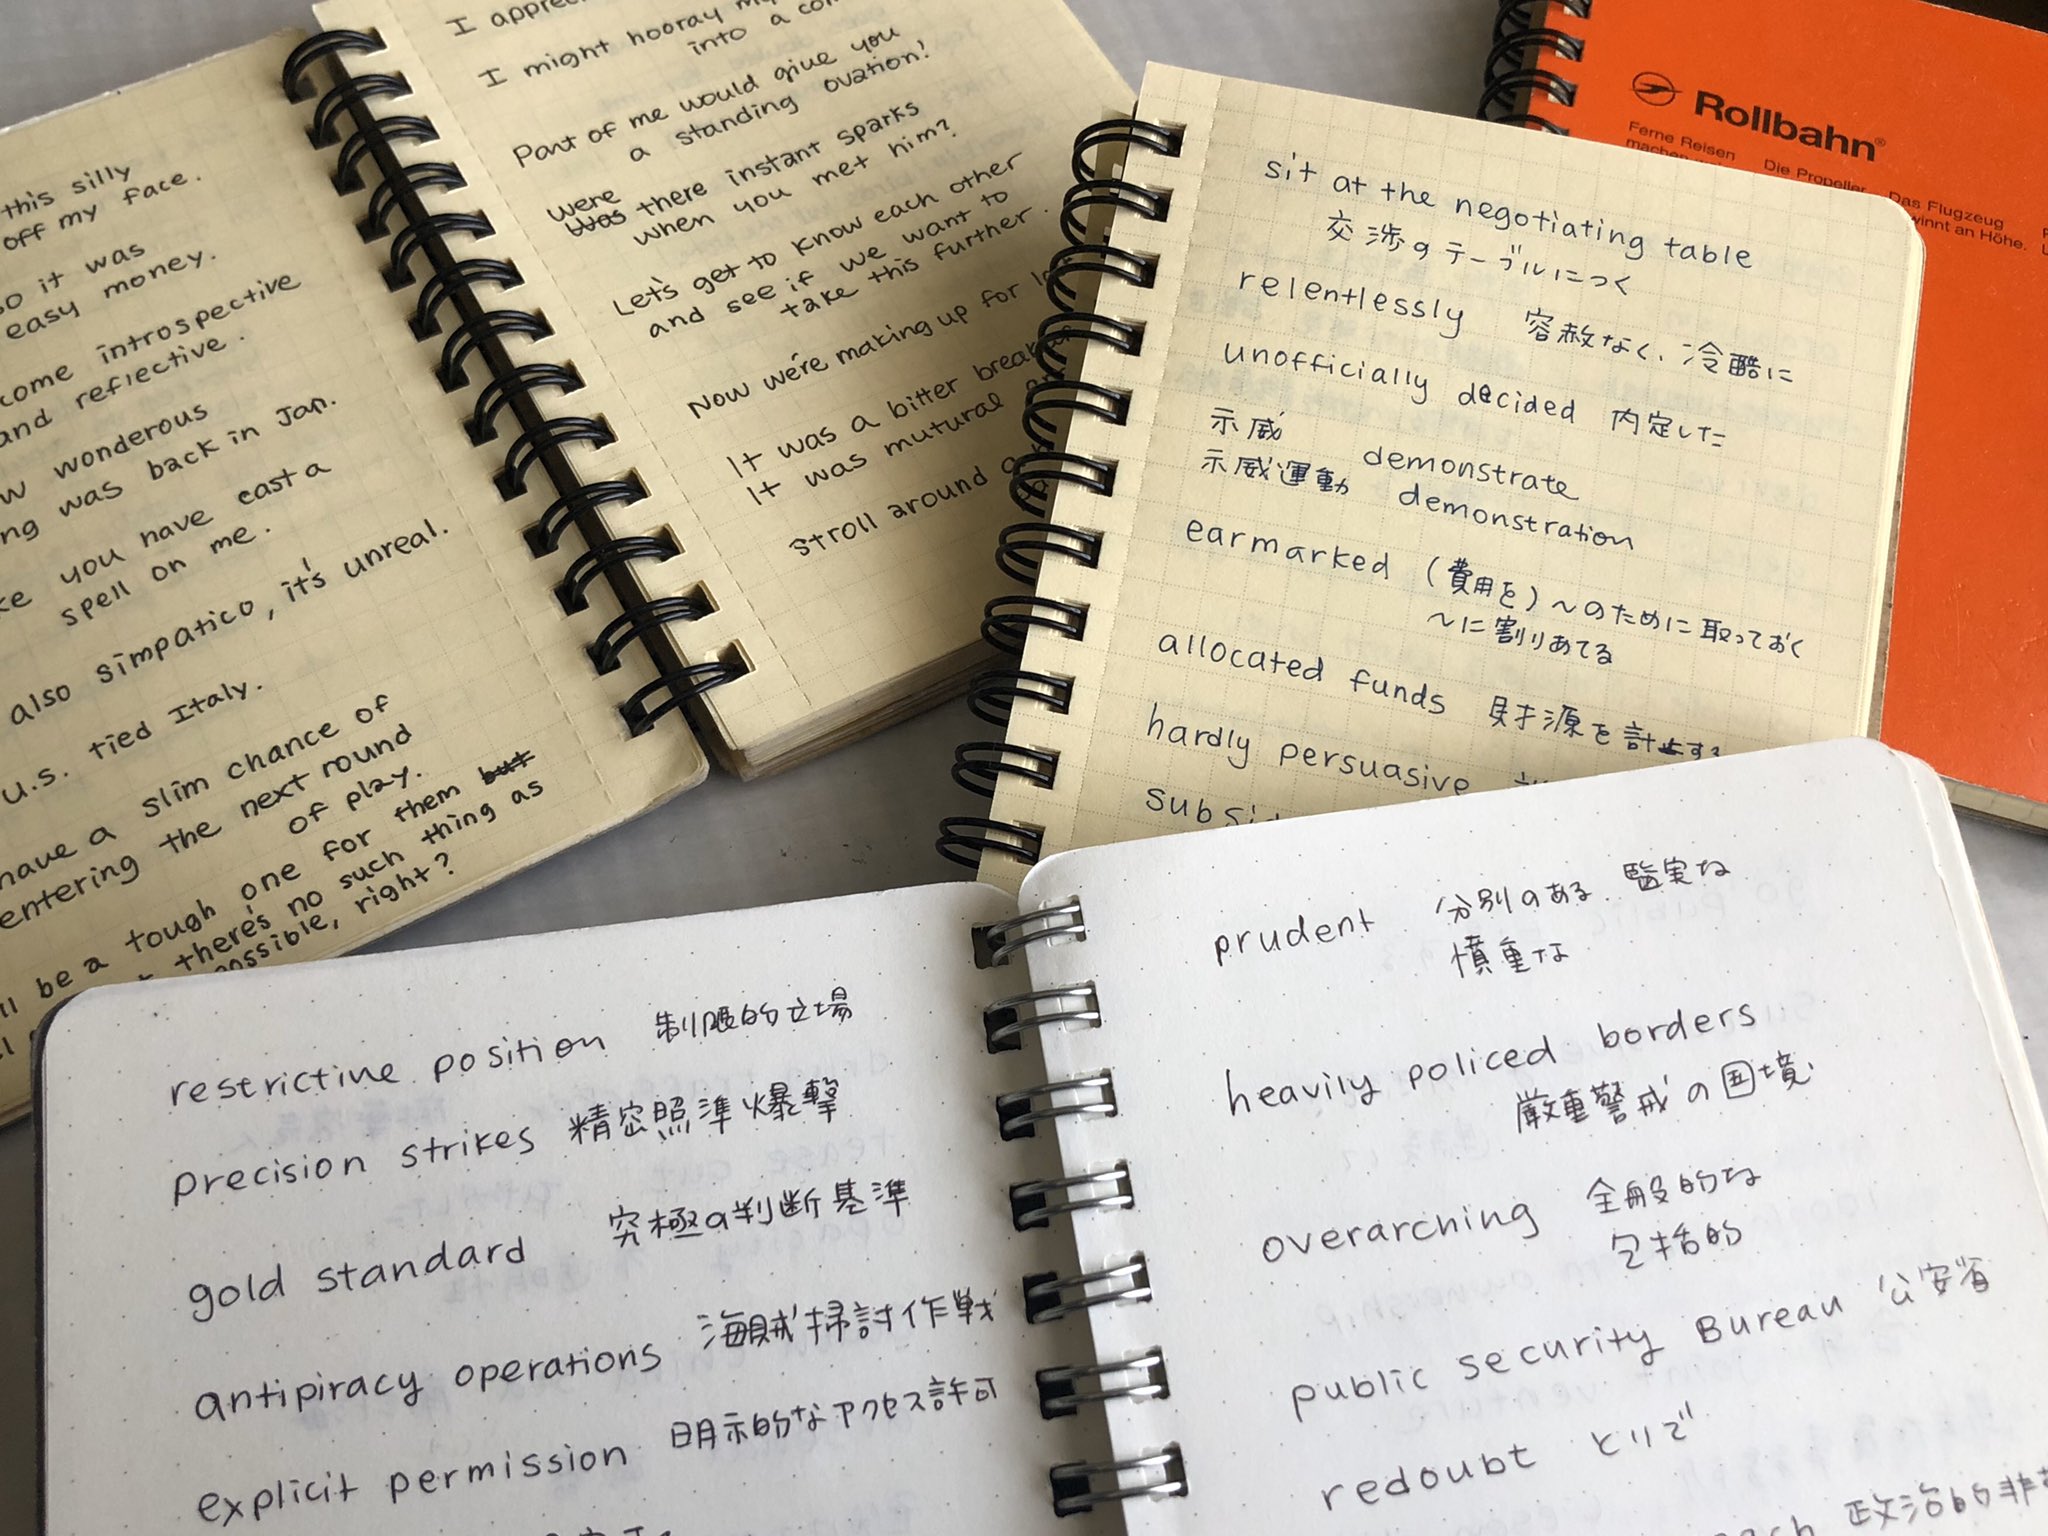 this silly
off my face.
so it was
easy money.
come introspective
and reflective.
wonderous
was back in Jan.
you have cast a
spell on me.
also simpatico, it's unreal.
U.S. tied Italy.
have a slim chance of
entering the next round
of play.
be a tough one for them but
there's no such thing as
right?
I
I might hooray my
into a
Part of me would give you
a standing ovation!
were
was there instant sparks
when you met him?
Let's get to know each other
and see if we want to
take this further.
Now we're making up for
It was a bitter
It was mutural
stroll around
sit at the negotiating table
交渉のテーブルにつく
relentlessly 容赦なく、冷酷に
unofficially decided 内定した
示威 demonstrate
示威運動 demonstration
earmarked (費用を)〜のために取っておく
〜に割りあてる
allocated funds 財源を計上する
hardly persuasive
Rollbahn®
Ferne Reisen
Die Propeller
Das Flugzeug
an Höhe.
restrictive position 制限的立場
precision strikes 精密照準爆撃
gold standard 究極の判断基準
antipiracy operations 海賊掃討作戦
explicit permission 明示的なアクセス許可
prudent 分別のある、堅実な
慎重な
heavily policed borders
厳重警戒の国境
overarching 全般的な
包括的
public security Bureau 公安省
redoubt とりで
政治的